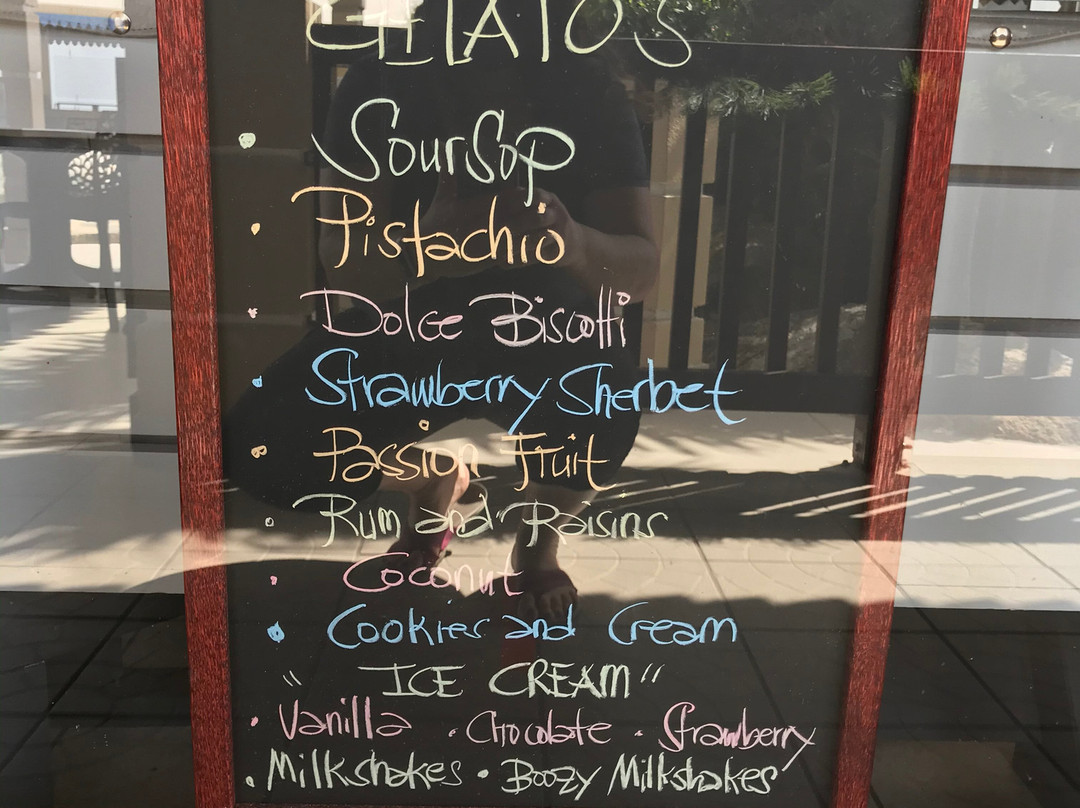 GELATOS
• Soursop
• Pistachio
• Dolce Biscotti
• Strawberry Sherbet
• Passion Fruit
• Rum and Raisins
• Coconut
• Cookies and Cream
"ICE CREAM"
• Vanilla • Chocolate • Strawberry
• Milkshakes • Boozy Milkshakes